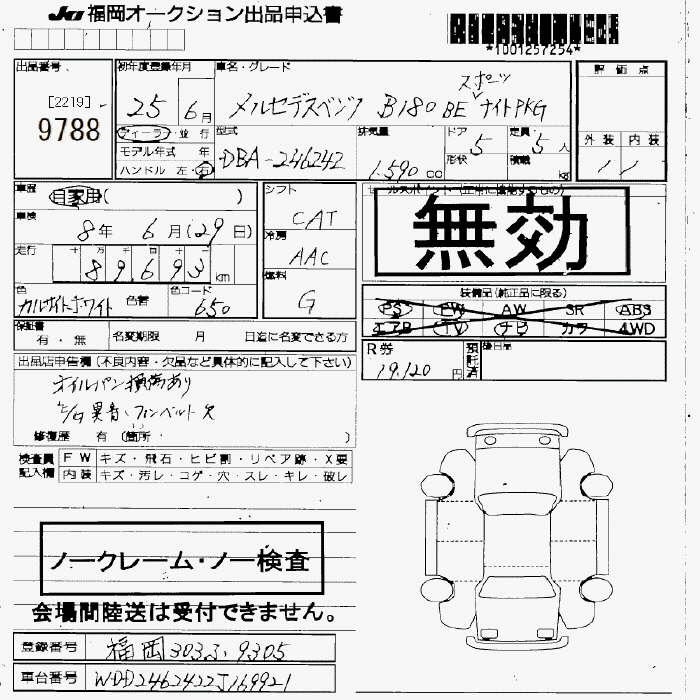 JU 福岡オークション出品申込書
*1001257254*
出品番号
[2219]
9788
初年度登録年月
25年 6月
車名・グレード
スポーツ
メルセデスベンツ B180 BE ナイトPKG
評価点
外装 内装
ディーラー・並行
モデル年式 年
ハンドル 左・右
型式
DBA-246242
排気量
1.590 cc
ドア
5
形状
定員
5人
積載 kg
車歴
自家用( )
車検
8年 6月(29日)
走行
十 万 千 百 十 一
89,693 km
色
カルサイトホワイト
色替
色コード
650
シフト
CAT
冷房
AAC
燃料
G
セールスポイント(正常に機能するもの)
無効
装備品(純正品に限る)
PS PW AW SR ABS
エアB TV ナビ カワ 4WD
保証書
有・無
名変期限 月 日迄に名変できる方
R券
19,120円
預託済
後日品
出品店申告欄(不良内容・欠品など具体的に記入して下さい)
オイルパン損傷あり
E/G異音、ファンベルト欠
修復歴 有(箇所・ )
検査員記入欄
FW キズ・飛石・ヒビ割・リペア跡・X要
内装 キズ・汚レ・コゲ・穴・スレ・キレ・破レ
ノークレーム・ノー検査
会場間陸送は受付できません。
登録番号 福岡303ふ9305
車台番号 WDD2462422J169921